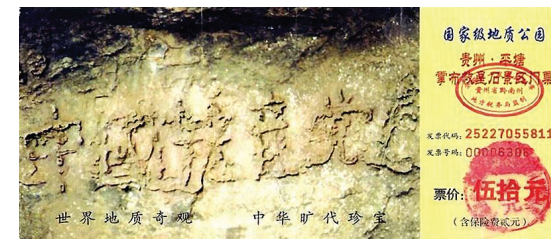 世界地质奇观 中华旷代珍宝
国家级地质公园
贵州·平塘
掌布藏字石景区门票
贵州省黔南州
地方税务局监制
发票代码: 25227055811
发票号码: 00006306
票价: 伍拾元
(含保险费贰元)